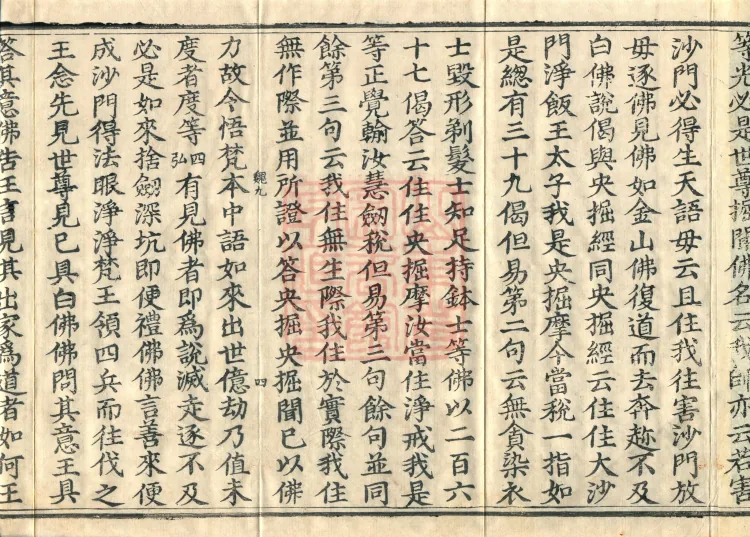 等光必是世尊掘聞佛名云我師亦云若害
沙門必得生天語毋云且住我往害沙門放
毋逐佛見佛如金山佛復道而去奔趂不及
白佛說偈與央掘經同央掘經云住住大沙
門淨飯王太子我是央掘摩今當稅一指如
是緫有三十九偈但易第二句云無貪染衣
士毀形剃髮士知足持鉢士等佛以二百六
十七偈答云住住央掘摩汝當住淨戒我是
等正覺輸汝慧劒稅但易第三句餘句並同
餘第三句云我住無生際我住於實際我住
無作際並用所證以答央掘央掘聞已以佛
緫九 四
力故今悟梵本中語如來出世億劫乃值未
度者度等四弘有見佛者即爲說滅走逐不及
必是如來捨劒深坑即便禮佛佛言善來便
成沙門得法眼淨淨梵王領四兵而往伐之
王念先見世尊見已具白佛佛問其意王具
答其意佛告王言見其出家爲道者如何王